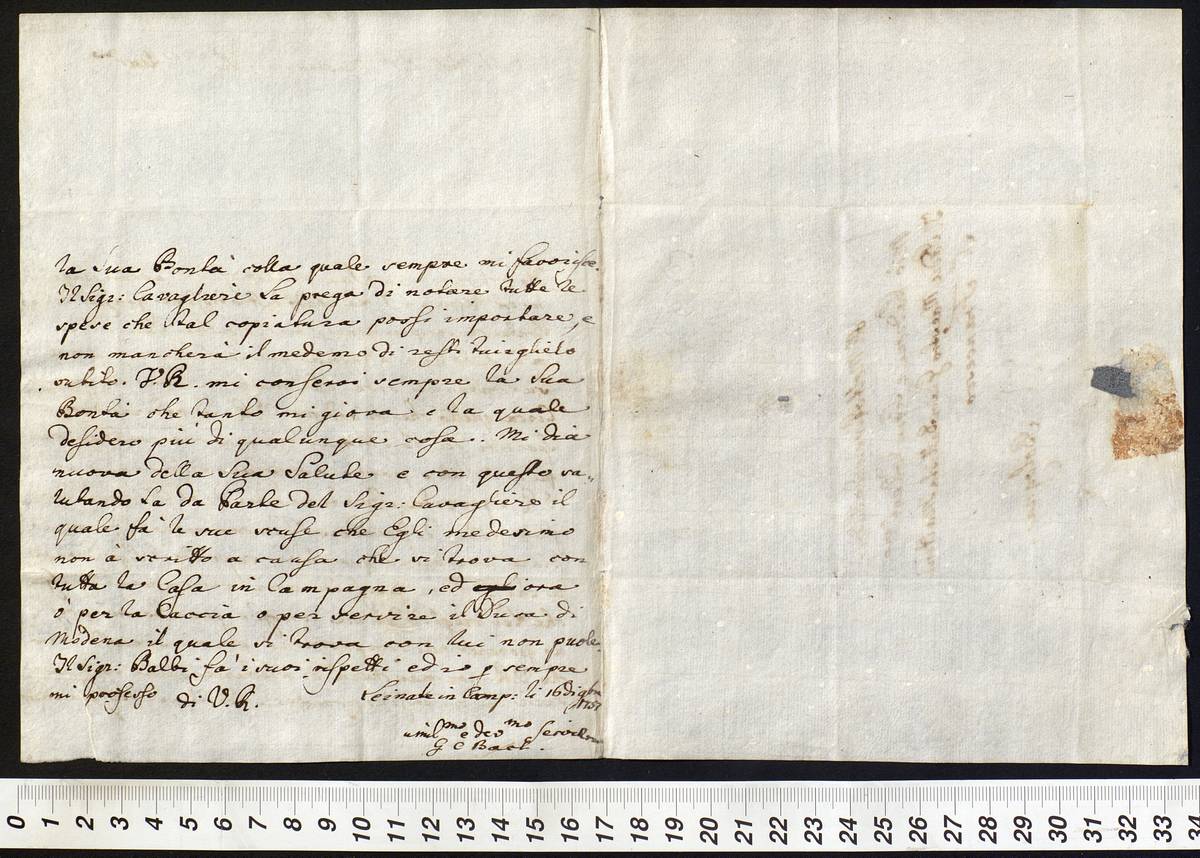 la Sua Bontà colla quale sempre mi favorisce.
Il Sigr: Cavagliere La prega di notare tutte le
spese che tal copiatura possi importare, e
non mancherà il medemo di restituirglielo
subito. V.R. mi conservi sempre la Sua
Bontà che tanto mi giova e la quale
desidero più di qualunque cosa. Mi dia
nuova della Sua Salute e con questo sa„
lutando La da Parte del Sigr: Cavagliere il
quale fà le sue scuse che Egli medesimo
non à scritto a causa che si trova con
tutta la Casa in Campagna, ed ora
ò per la Caccia o per servire il Duca di
Modena il quale si trova con lui non puole.
Il Sigr: Balbi fà i suoi rispetti ed io p sempre
mi professo di V.R.
Leinate in Camp: li 16
umilmo e devmo Servitore
G C Bach.
0 1 2 3 4 5 6 7 8 9 10 11 12 13 14 15 16 17 18 19 20 21 22 23 24 25 26 27 28 29 30 31 32 33 34